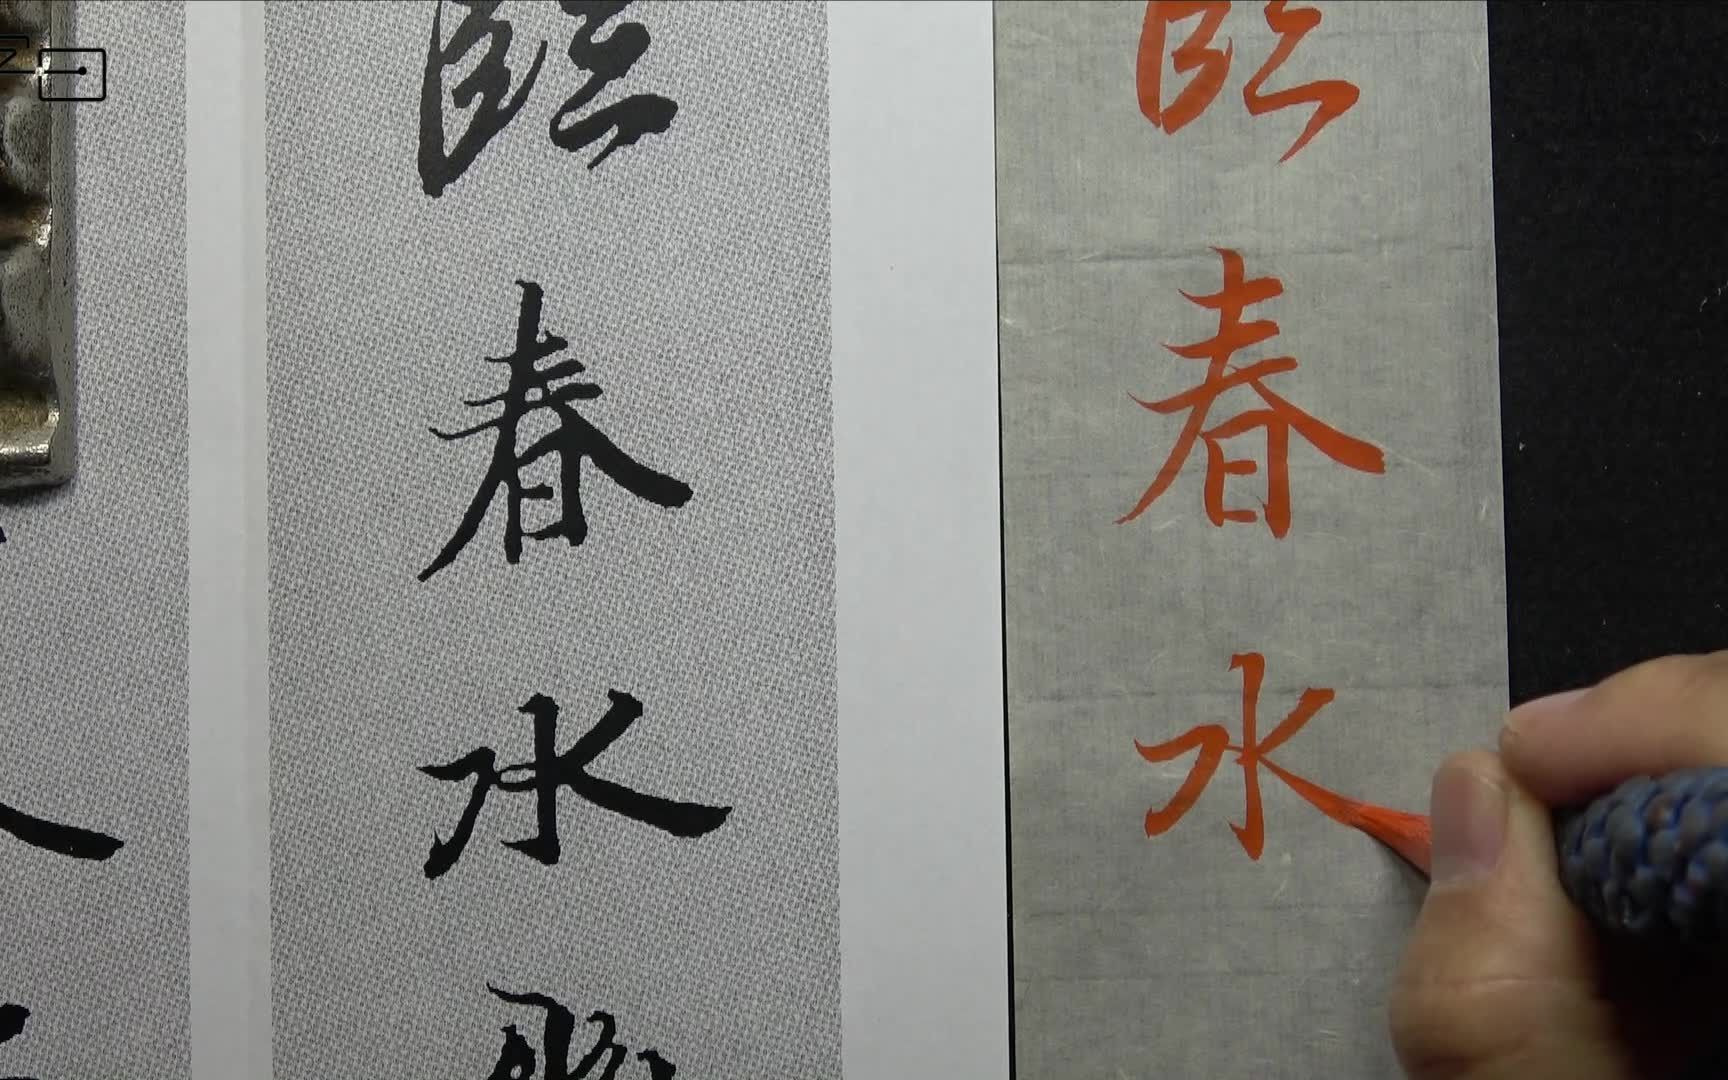 臨春水
臨春水